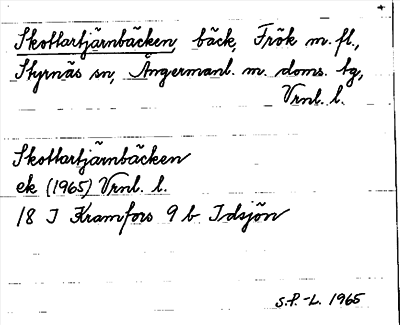 Skottartjärnbäcken, bäck, Frök m. fl.,
Styrnäs sn, Ångermanl. m. doms. tg,
Vrnl. l.
Skottartjärnbäcken
ek (1965) Vrnl. l.
18 I Kramfors 9 b Idsjön
S.P.-L. 1965